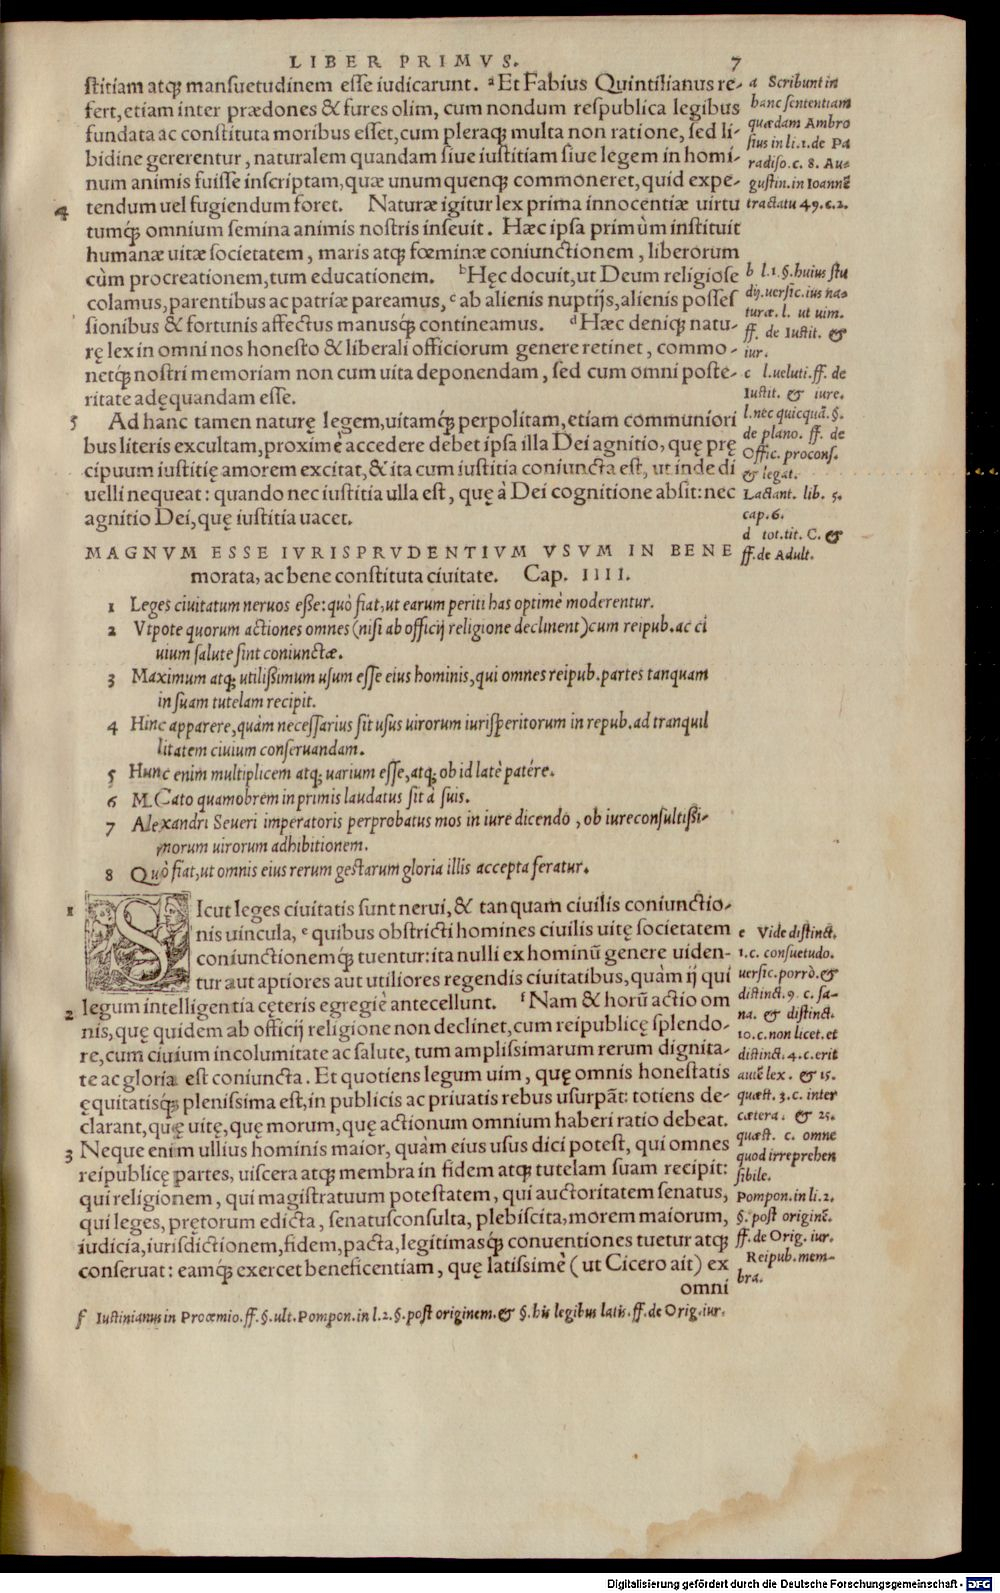 LIBER PRIMVS. 7
stitiam atq́; mansuetudinem esse iudicarunt. ᵃEt Fabius Quintilianus re-
fert, etiam inter prædones & fures olim, cum nondum respublica legibus
fundata ac constituta moribus esset, cum pleraq́; multa non ratione, sed li-
bidine gererentur, naturalem quandam siue iustitiam siue legem in homi-
num animis fuisse inscriptam, quæ unumquenq́; commoneret, quid expe-
4 tendum uel fugiendum foret. Naturæ igitur lex prima innocentiæ uirtu
tumq́; omnium semina animis nostris inseuit. Hæc ipsa primùm instituit
humanæ uitæ societatem, maris atq́; fœminæ coniunctionem, liberorum
cùm procreationem, tum educationem. ᵇHęc docuit, ut Deum religiose
colamus, parentibus ac patriæ pareamus, ᶜab alienis nuptijs, alienis posses
sionibus & fortunis affectus manusq́; contineamus. ᵈHæc deniq́; natu-
rę lex in omni nos honesto & liberali officiorum genere retinet, commo-
netq́; nostri memoriam non cum uita deponendam, sed cum omni poste-
ritate adęquandam esse.
5 Ad hanc tamen naturę legem, uitamq́; perpolitam, etiam communiori
bus literis excultam, proximè accedere debet ipsa illa Dei agnitio, quę prę
cipuum iustitię amorem excitat, & ita cum iustitia coniuncta est, ut inde di
uelli nequeat: quando nec iustitia ulla est, quę à Dei cognitione absit: nec
agnitio Dei, quę iustitia uacet.
a Scribunt in
hanc sententiam
quædam Ambro
sius in li. 1. de Pa
radiso. c. 8. Au-
gustin. in Ioannē
tractatu 49. c. 2.
b l. 1. §. huius stu
dij. uersic. ius na-
turæ. l. ut uim.
ff. de Iustit. &
iur.
c l. ueluti. ff. de
Iustit. & iure.
l. nec quicquā. §.
de plano. ff. de
Offic. procons.
& legat.
Lactant. lib. 5.
cap. 6.
d tot. tit. C. &
ff. de Adult.
MAGNVM ESSE IVRISPRVDENTIVM VSVM IN BENE
morata, ac bene constituta ciuitate. Cap. IIII.
1 Leges ciuitatum neruos esse: quò fiat, ut earum periti has optimè moderentur.
2 Vtpote quorum actiones omnes (nisi ab officij religione declinent) cum reipub. ac ci
uium salute sint coniunctæ.
3 Maximum atq; utilißimum usum esse eius hominis, qui omnes reipub. partes tanquam
in suam tutelam recipit.
4 Hinc apparere, quàm necessarius sit usus uirorum iurisperitorum in repub. ad tranquil
litatem ciuium conseruandam.
5 Hunc enim multiplicem atq; uarium esse, atq; ob id latè patére.
6 M. Cato quamobrem in primis laudatus sit à suis.
7 Alexandri Seueri imperatoris perprobatus mos in iure dicendo, ob iureconsultißi-
morum uirorum adhibitionem.
8 Quò fiat, ut omnis eius rerum gestarum gloria illis accepta feratur.
1 SIcut leges ciuitatis sunt nerui, & tanquam ciuilis coniunctio-
nis uincula, ᵉquibus obstricti homines ciuilis uitę societatem
coniunctionemq́; tuentur: ita nulli ex hominũ genere uiden-
tur aut aptiores aut utiliores regendis ciuitatibus, quàm ij qui
legum intelligentia cęteris egregiè antecellunt. ᶠNam & horũ actio om
2 nis, quę quidem ab officij religione non declinet, cum reipublicę splendo-
re, cum ciuium incolumitate ac salute, tum amplissimarum rerum dignita-
te ac gloria est coniuncta. Et quotiens legum uim, quę omnis honestatis
ęquitatisq́; plenissima est, in publicis ac priuatis rebus usurpãt: totiens de-
clarant, quę uitę, quę morum, quę actionum omnium haberi ratio debeat.
3 Neque enim ullius hominis maior, quàm eius usus dici potest, qui omnes
reipublicę partes, uiscera atq́; membra in fidem atq́; tutelam suam recipit:
qui religionem, qui magistratuum potestatem, qui auctoritatem senatus,
qui leges, prętorum edicta, senatusconsulta, plebiscita, morem maiorum,
iudicia, iurisdictionem, fidem, pacta, legitimasq́; conuentiones tuetur atq́;
conseruat: eamq́; exercet beneficentiam, quę latissimè (ut Cicero ait) ex
omni
e Vide distinct.
1. c. consuetudo.
uersic. porrò. &
distinct. 9. c. sa-
na. & distinct.
10. c. non licet. et
distinct. 4. c. erit
autē lex. & 15.
quæst. 3. c. inter
cætera. & 25.
quæst. c. omne
quod irreprehen
sibile.
Pompon. in li. 2.
§. post originē.
ff. de Orig. iur.
Reipub. mem-
bra.
f Iustinianus in Procœmio. ff. §. ult. Pompon. in l. 2. §. post originem. & §. his legibus latis. ff. de Orig. iur.
Digitalisierung gefördert durch die Deutsche Forschungsgemeinschaft - DFG